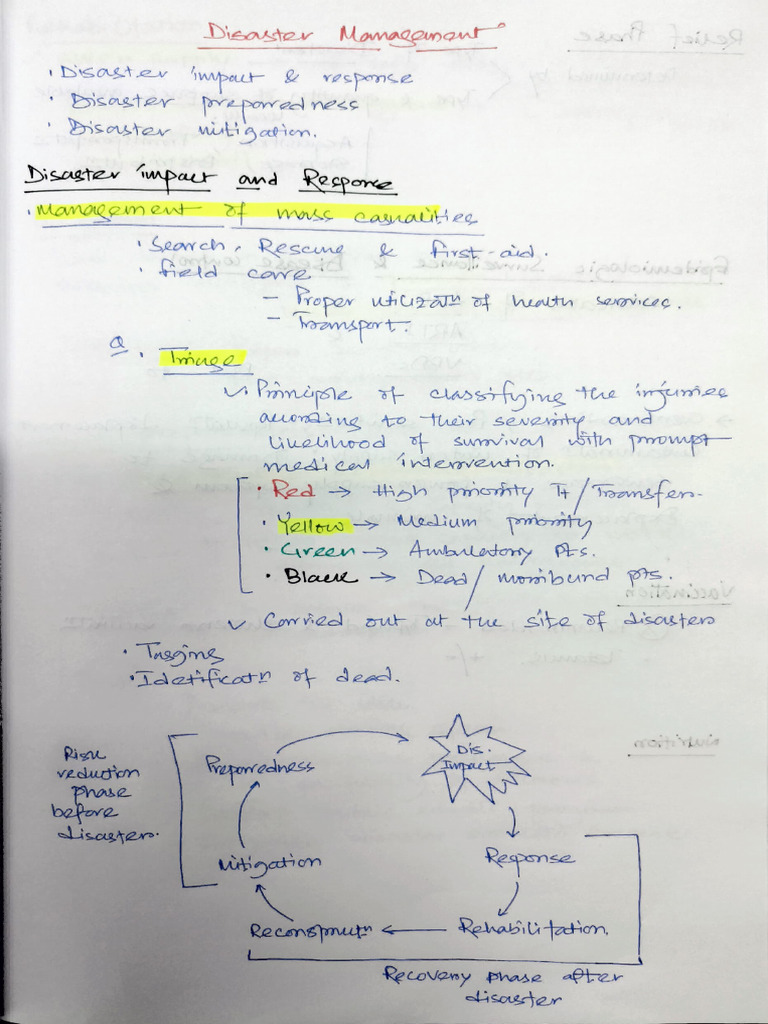 Disaster Management
· Disaster impact & response
· Disaster preparedness
· Disaster mitigation.
Disaster impact and Response
· Management of mass casualities
· Search, Rescue & first-aid.
· field care
– Proper utilizatn of health services.
– Transport.
Q · Triage
✓ Principle of classifying the injuries
according to their severity and
likelihood of survival with prompt
medical intervention.
· Red → High priority Tt / Transfer.
· Yellow → Medium priority
· Green → Ambulatory Pts.
· Black → Dead / moribund pts.
✓ Carried out at the site of disaster
· Tagging
· Idetificatn of dead.
Risk
reduction
phase
before
disaster.
Preparedness
Dis.
Impact
Mitigation
Response
Reconstructn ← Rehabilitation.
Recovery phase after
disaster